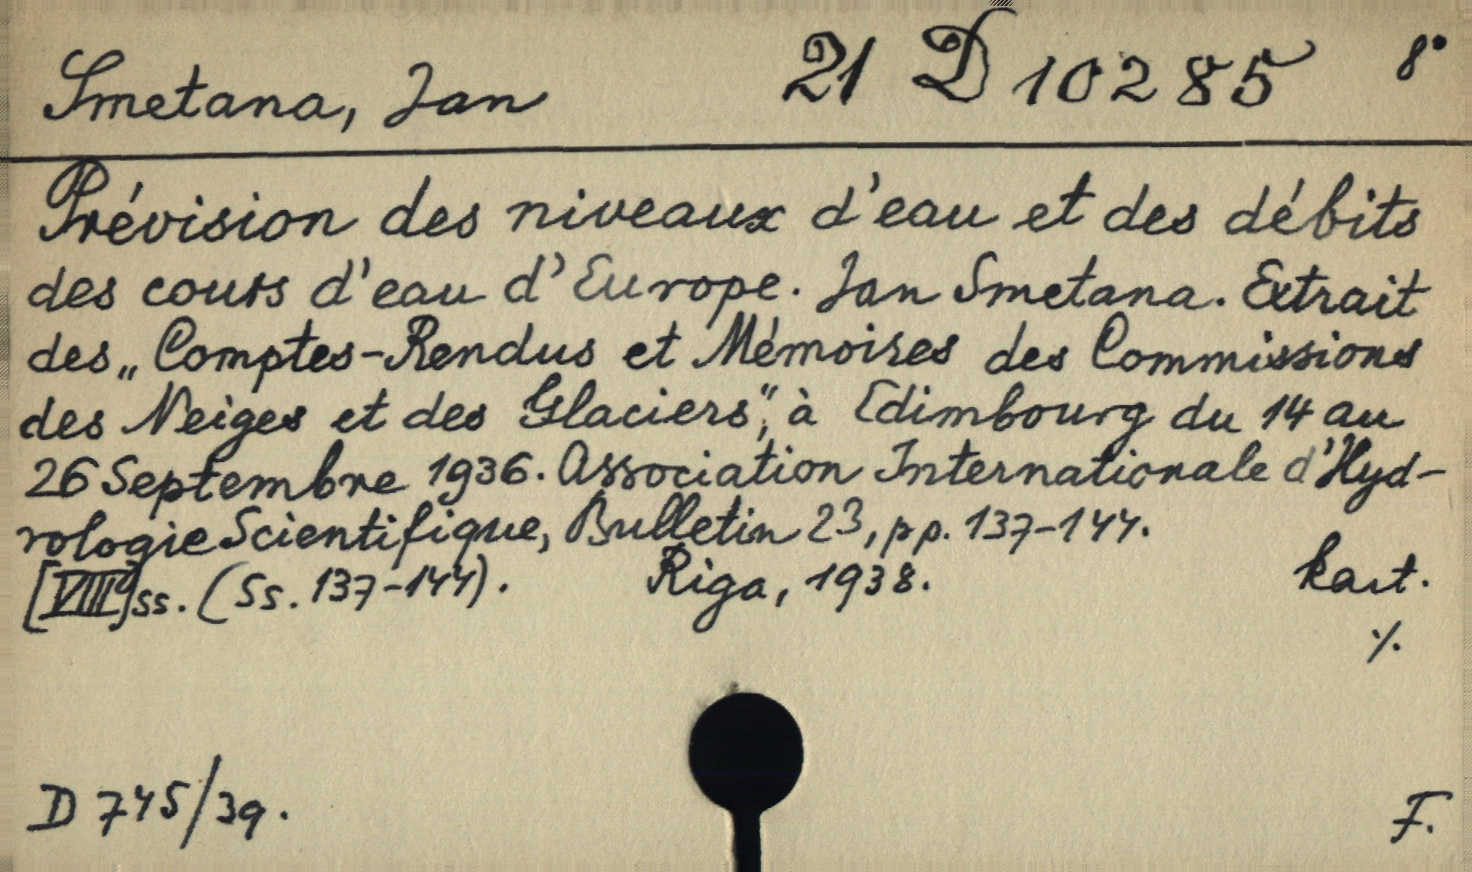 Smetana, Jan 21 D 10285 8°
Prévision des niveaux d'eau et des débits
des cours d'eau d'Europe. Jan Smetana. Extrait
des „Comptes-Rendus et Mémoires des Commissions
des Neiges et des Glaciers", à Edimbourg du 14 au
26 Septembre 1936. Association Internationale d'Hyd-
rologie Scientifique, Bulletin 23, pp. 137-144.
[VIII]ss. (Ss. 137-144). Riga, 1938. kart.
./.
D 745/39. F.